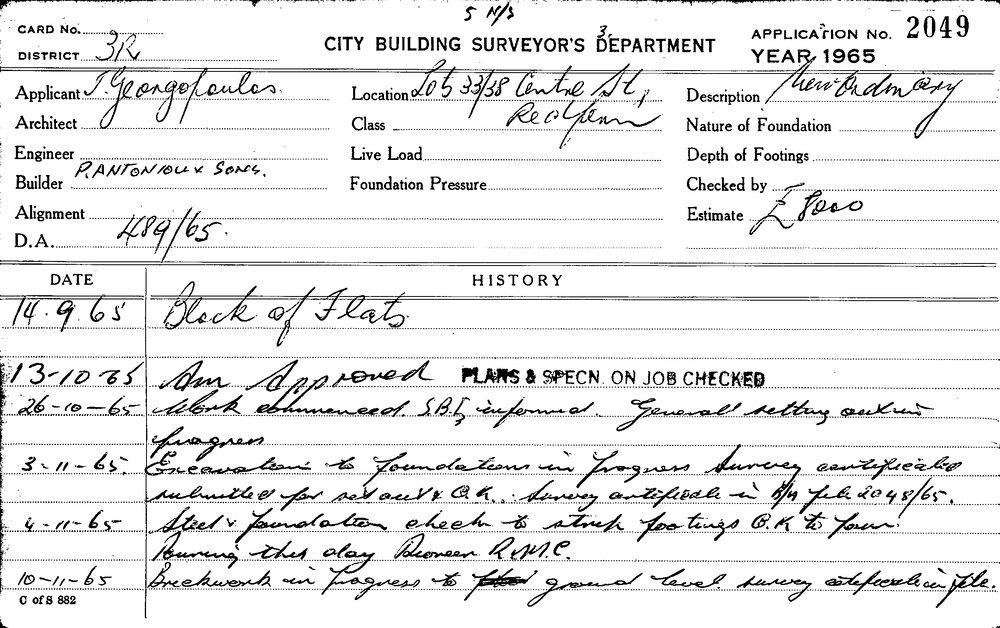 5 N/S
CARD No.
DISTRICT 3R
CITY BUILDING SURVEYOR'S DEPARTMENT
3
APPLICATION No. 2049
YEAR 1965
Applicant J. Georgopoulos
Location Lots 33/38 Centre St,
Redfern
Description New Ordinary
Architect
Class
Nature of Foundation
Engineer
Live Load
Depth of Footings
Builder P. ANTONIOU & SONS.
Foundation Pressure
Checked by
Alignment
Estimate £ 8000
D.A. 489/65.
DATE HISTORY
14.9.65 Block of Flats
13-10-65 Am Approved PLANS & SPECN. ON JOB CHECKED
26-10-65 Work commenced S.B.I. informed. General setting out in
progress
3-11-65. Excavation to foundations in progress survey certificate
submitted for set out & O.K. Survey certificate in file 2048/65.
4-11-65 Steel & foundation check to strip footings O.K to pour.
Pouring this day Pioneer R.M.C.
10-11-65 Brickwork in progress to ground level survey certificate in file.
C of S 882